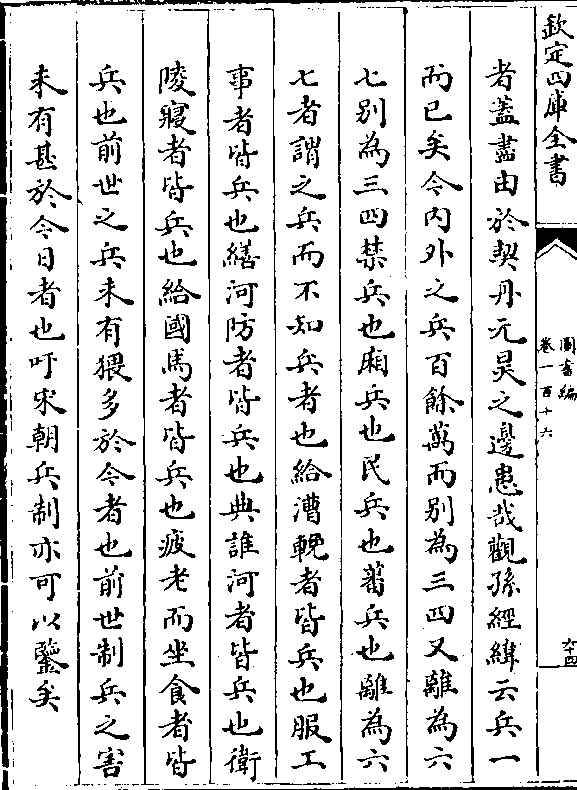 欽定四庫全書
圖書編
卷一百十六
六十四
者蓋盡由於契丹元昊之邊患哉觀孫經緯云兵一
而已矣今内外之兵百餘萬而别為三四又離為六
七别為三四禁兵也廂兵也民兵也蕃兵也離為六
七者謂之兵而不知兵者也給漕輓者皆兵也服工
事者皆兵也繕河防者皆兵也典誰河者皆兵也衛
陵寢者皆兵也給國馬者皆兵也疲老而坐食者皆
兵也前世之兵未有猥多於今者也前世制兵之害
未有甚於今日者也吁宋朝兵制亦可以鑒矣